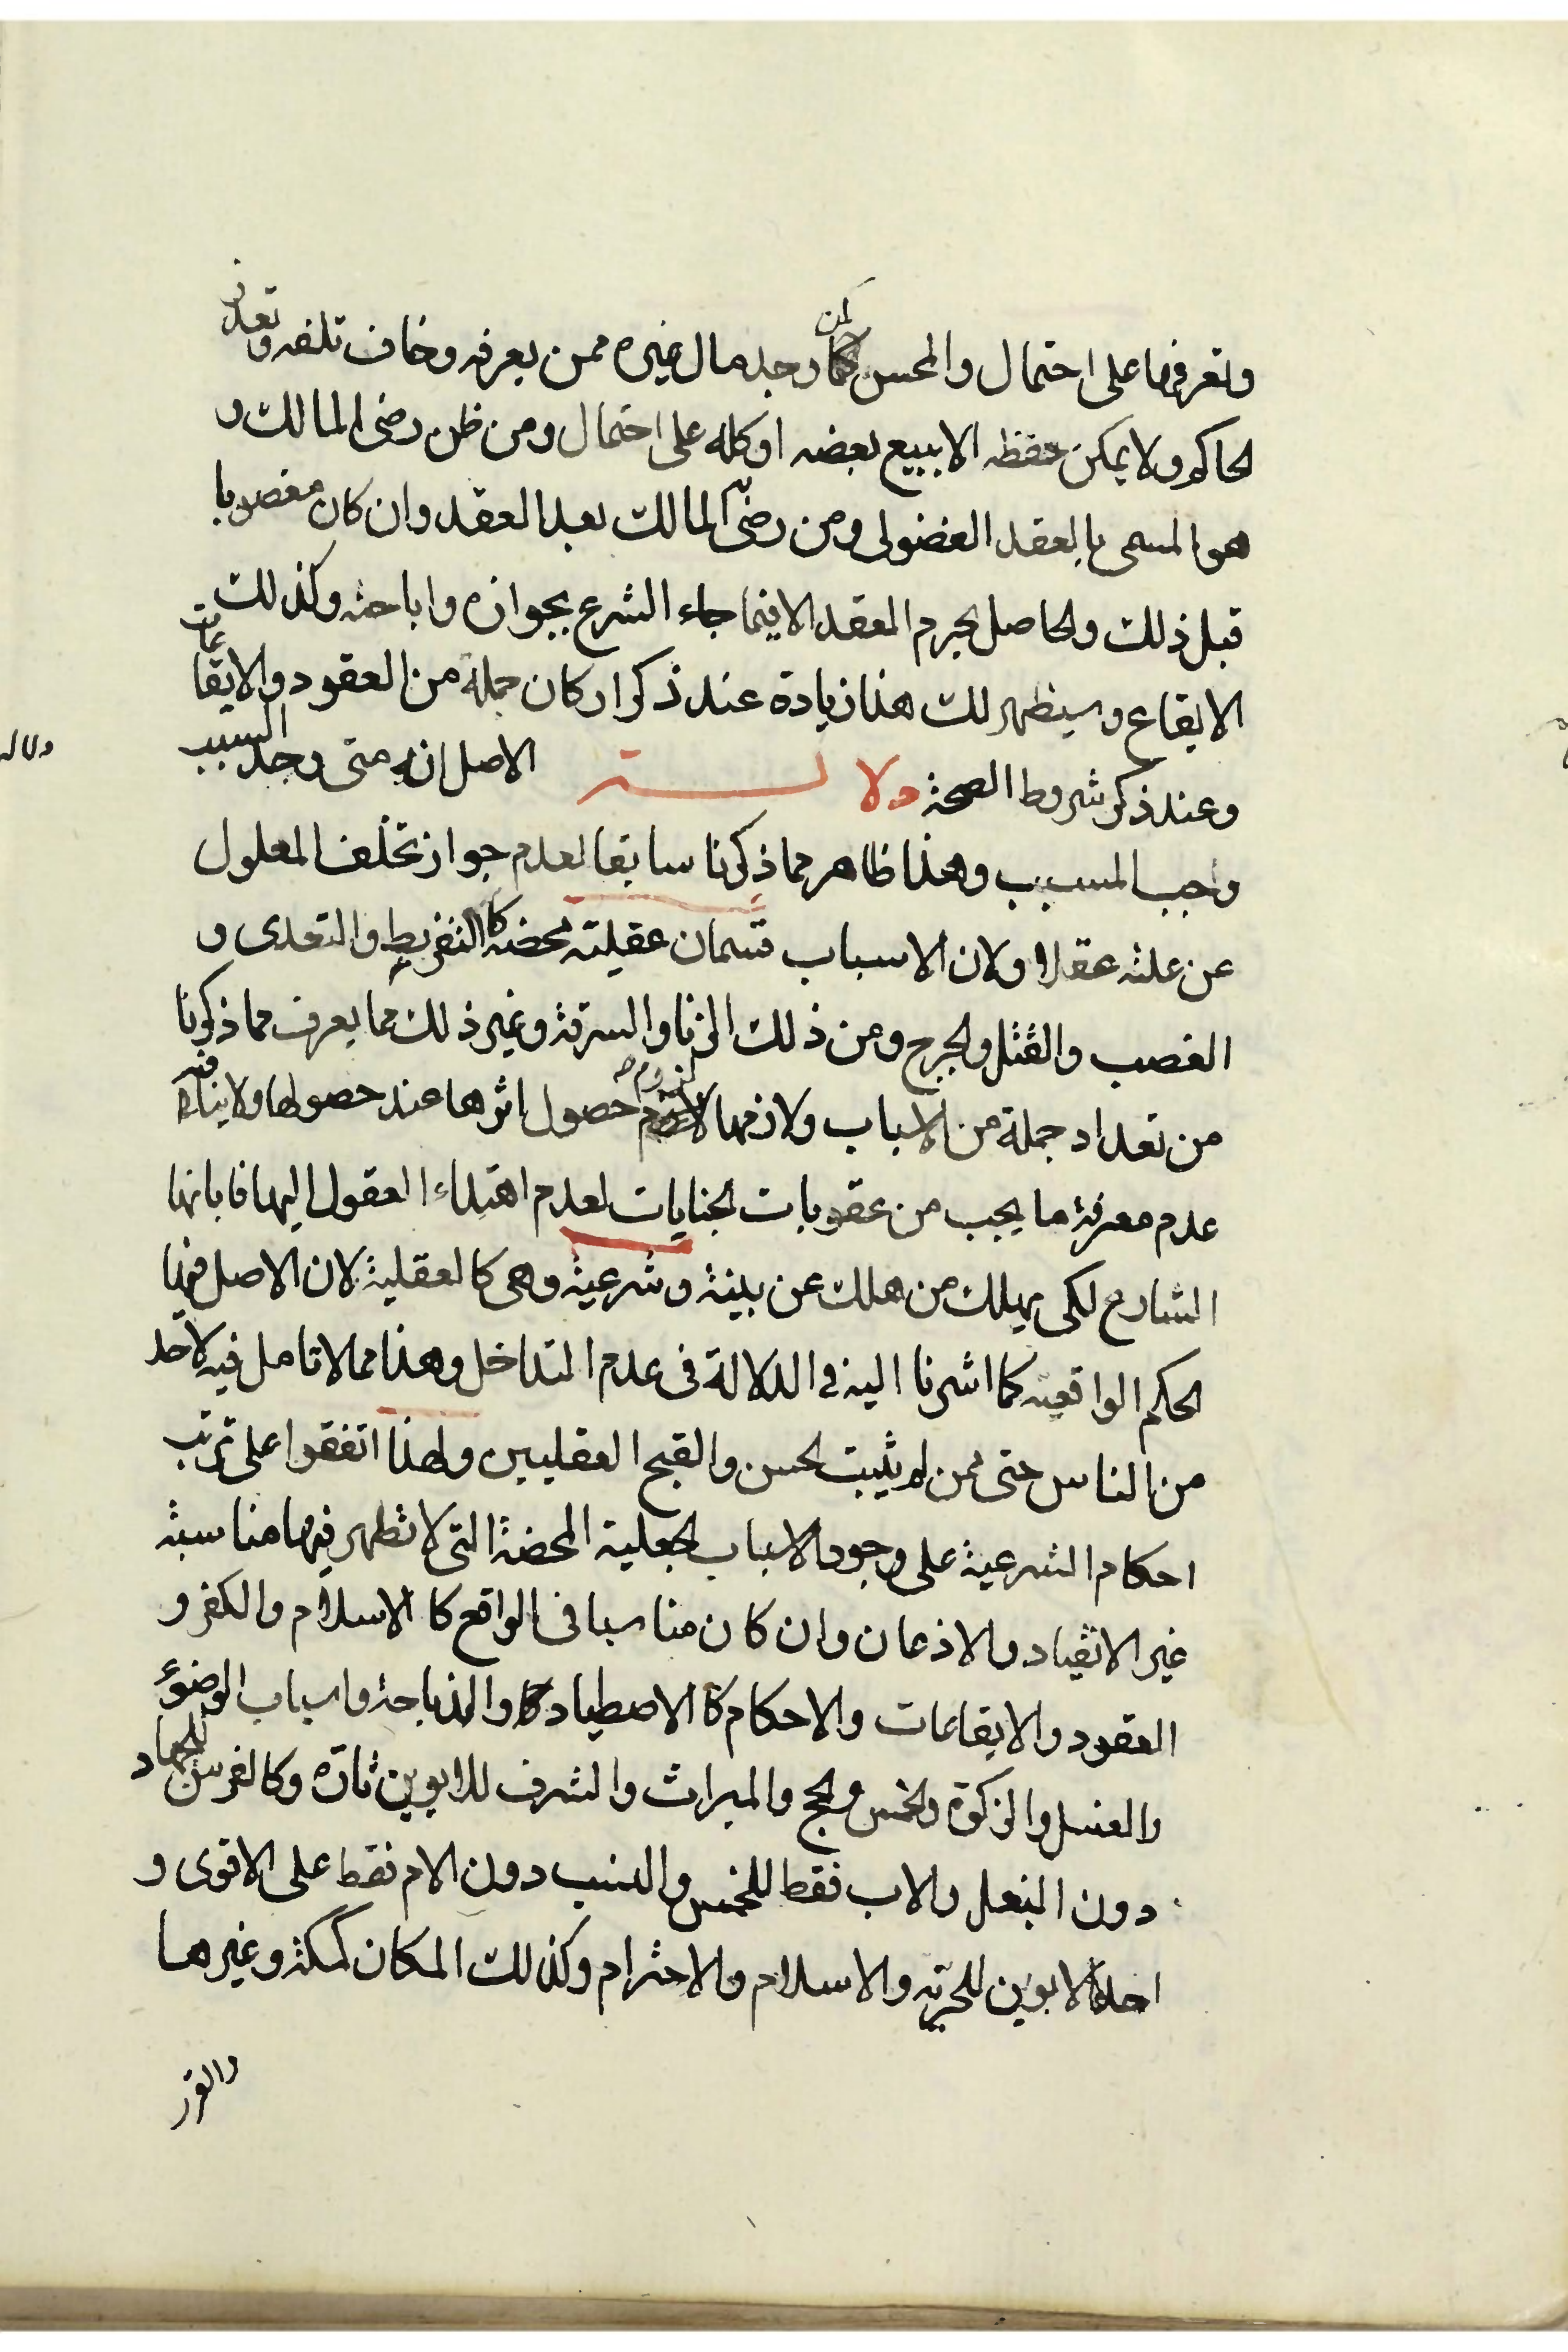 وتعرفها على احتمال والمحسن كمن وجد مال غيره ممن يعرفه وخاف تلفه وتعذر
الحاكم ولا يمكن حفظه الا ببيع بعضه او كله على احتمال ومن ظن رضى المالك و
هو المسمى بالعقد الفضولى ومن رضى المالك بعد العقد وان كان مغصوبا
قبل ذلك والحاصل يحرم العقد الا فيما جاء الشرع بجوازه واباحته وكذلك
الايقاع وسيظهر لك هذا زيادة عند ذكر اركان جملة من العقود والايقاعات
وعند ذكر شروط الصحة دلالــــة الاصل انه متى وجد السبب
وجب المسبب وهذا ظاهر مما ذكرنا سابقا لعدم جواز تخلف المعلول
عن علته عقلا ولان الاسباب قسمان عقلية محضة كالتفريط والتعدى و
الغصب والقتل والجرح ومن ذلك الزنا والسرقة وغير ذلك مما يعرف مما ذكرنا
من تعداد جملة من الاسباب ولازمها لزوم حصول اثرها عند حصولها ولا ينافيه
عدم معرفة ما يجب من عقوبات الجنايات لعدم اهتداء العقول اليها فابانها
الشارع لكى يهلك من هلك عن بينة وشرعية وهى كالعقلية لان الاصل فيها
الحكم الواقعية كما اشرنا اليه فى الدلالة فى عدم التداخل وهذا مما لا تامل فيه لاحد
من الناس حتى ممن لم يثبت الحسن والقبح العقليين ولهذا اتفقوا على ترتب
احكام الشرعية على وجود الاسباب الجعلية المحضة التى لا تظهر فيها مناسبة
غير الانقياد والاذعان وان كان مناسبا فى الواقع كالاسلام والكفر و
العقود والايقاعات والاحكام كالاصطياد والذباحة واسباب الوضوء
والغسل والزكوة والخمس والحج والميراث والشرف للابوين تارة وكالفرس للجهاد
دون البغل والاب فقط للخمس والنسب دون الام فقط على الاقوى و
احد الابوين للحرية والاسلام والاحترام وكذلك المكان كمكة وغيرها